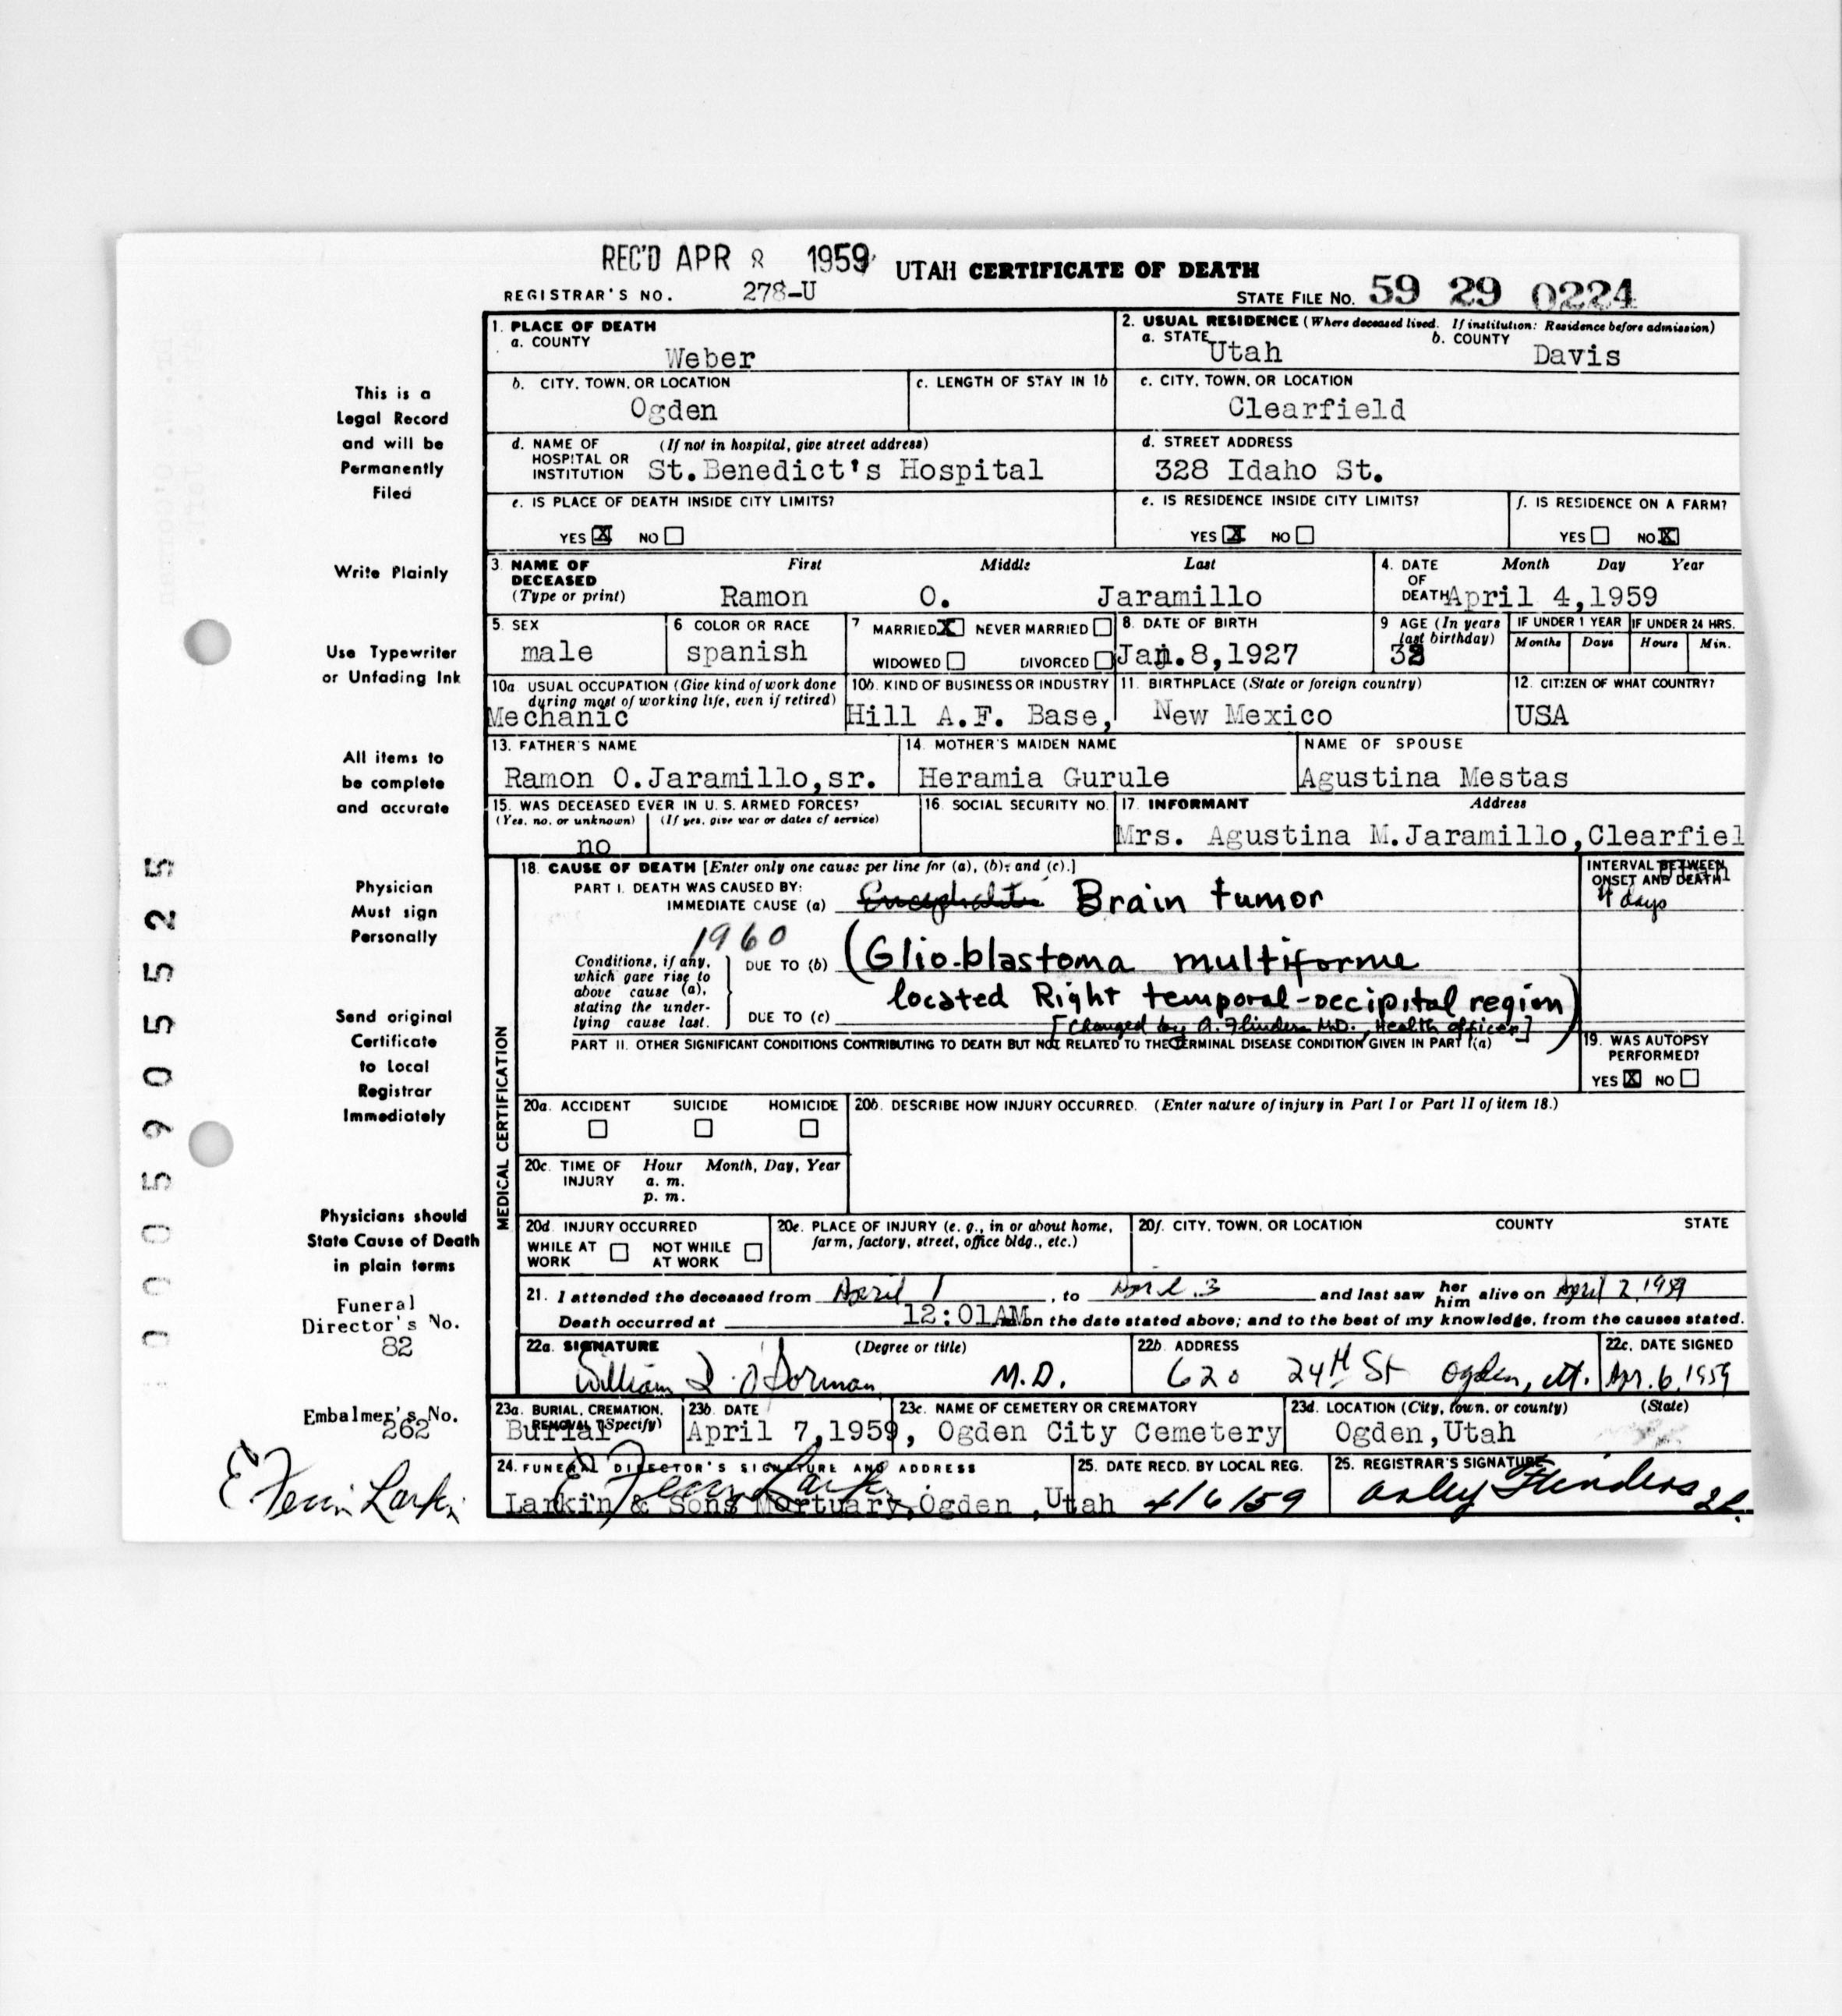 REC'D APR 8 1959
UTAH CERTIFICATE OF DEATH
REGISTRAR'S NO. 278-U
STATE FILE NO. 59 29 0224
This is a
Legal Record
and will be
Permanently
Filed
Write Plainly
Use Typewriter
or Unfading Ink
All items to
be complete
and accurate
Physician
Must sign
Personally
Send original
Certificate
to Local
Registrar
Immediately
Physicians should
State Cause of Death
in plain terms
Funeral
Director's No.
82
Embalmer's No.
262
1. PLACE OF DEATH
a. COUNTY
Weber
2. USUAL RESIDENCE (Where deceased lived. If institution: Residence before admission)
a. STATE Utah b. COUNTY Davis
b. CITY, TOWN, OR LOCATION
Ogden
c. LENGTH OF STAY IN 1b
c. CITY, TOWN, OR LOCATION
Clearfield
d. NAME OF (If not in hospital, give street address)
HOSPITAL OR
INSTITUTION St.Benedict's Hospital
d. STREET ADDRESS
328 Idaho St.
e. IS PLACE OF DEATH INSIDE CITY LIMITS?
YES X NO
e. IS RESIDENCE INSIDE CITY LIMITS?
YES X NO
f. IS RESIDENCE ON A FARM?
YES NO X
3. NAME OF First Middle Last
DECEASED
(Type or print) Ramon O. Jaramillo
4. DATE Month Day Year
OF
DEATH April 4,1959
5. SEX
male
6 COLOR OR RACE
spanish
7 MARRIED X NEVER MARRIED
WIDOWED DIVORCED
8. DATE OF BIRTH
Jan.8,1927
9 AGE (In years
last birthday)
32
IF UNDER 1 YEAR IF UNDER 24 HRS.
Months Days Hours Min.
10a USUAL OCCUPATION (Give kind of work done
during most of working life, even if retired)
Mechanic
10b. KIND OF BUSINESS OR INDUSTRY
Hill A.F. Base,
11. BIRTHPLACE (State or foreign country)
New Mexico
12. CITIZEN OF WHAT COUNTRY?
USA
13. FATHER'S NAME
Ramon O.Jaramillo,sr.
14. MOTHER'S MAIDEN NAME
Heramia Gurule
NAME OF SPOUSE
Agustina Mestas
15. WAS DECEASED EVER IN U.S. ARMED FORCES?
(Yes, no, or unknown) (If yes, give war or dates of service)
no
16. SOCIAL SECURITY NO.
17. INFORMANT Address
Mrs. Agustina M.Jaramillo,Clearfiel
MEDICAL CERTIFICATION
18. CAUSE OF DEATH [Enter only one cause per line for (a), (b), and (c).]
PART I. DEATH WAS CAUSED BY:
IMMEDIATE CAUSE (a) Encephalitis Brain tumor
INTERVAL BETWEEN
ONSET AND DEATH
4 days
1960
Conditions, if any,
which gave rise to
above cause (a),
stating the under-
lying cause last.
DUE TO (b) (Glio-blastoma multiforme
located Right temporal-occipital region)
DUE TO (c)
[Changed by A. Flinders M.D., Health officer]
PART II. OTHER SIGNIFICANT CONDITIONS CONTRIBUTING TO DEATH BUT NOT RELATED TO THE TERMINAL DISEASE CONDITION GIVEN IN PART I(a)
19. WAS AUTOPSY
PERFORMED?
YES X NO
20a. ACCIDENT SUICIDE HOMICIDE
20b. DESCRIBE HOW INJURY OCCURRED. (Enter nature of injury in Part I or Part II of item 18.)
20c. TIME OF Hour Month, Day, Year
INJURY a. m.
p. m.
20d. INJURY OCCURRED
WHILE AT NOT WHILE
WORK AT WORK
20e. PLACE OF INJURY (e. g., in or about home,
farm, factory, street, office bldg., etc.)
20f. CITY, TOWN, OR LOCATION COUNTY STATE
21. I attended the deceased from April 1, to April 3 and last saw her him alive on April 2, 1959
Death occurred at 12:01AM on the date stated above; and to the best of my knowledge, from the causes stated.
22a. SIGNATURE (Degree or title)
William O'Gorman M.D.
22b. ADDRESS
620 24th St Ogden, Ut.
22c. DATE SIGNED
Apr. 6, 1959
23a. BURIAL, CREMATION,
REMOVAL (Specify)
Burial
23b. DATE
April 7,1959,
23c. NAME OF CEMETERY OR CREMATORY
Ogden City Cemetery
23d. LOCATION (City, town, or county) (State)
Ogden,Utah
24. FUNERAL DIRECTOR'S SIGNATURE AND ADDRESS
Larkin & Sons Mortuary,Ogden ,Utah
25. DATE RECD. BY LOCAL REG.
4/6/59
25. REGISTRAR'S SIGNATURE
Flinders
Larkin